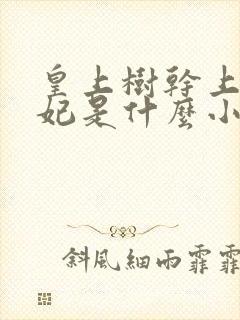 皇上樹幹上
妃是什麼小
斜風細雨霏霏